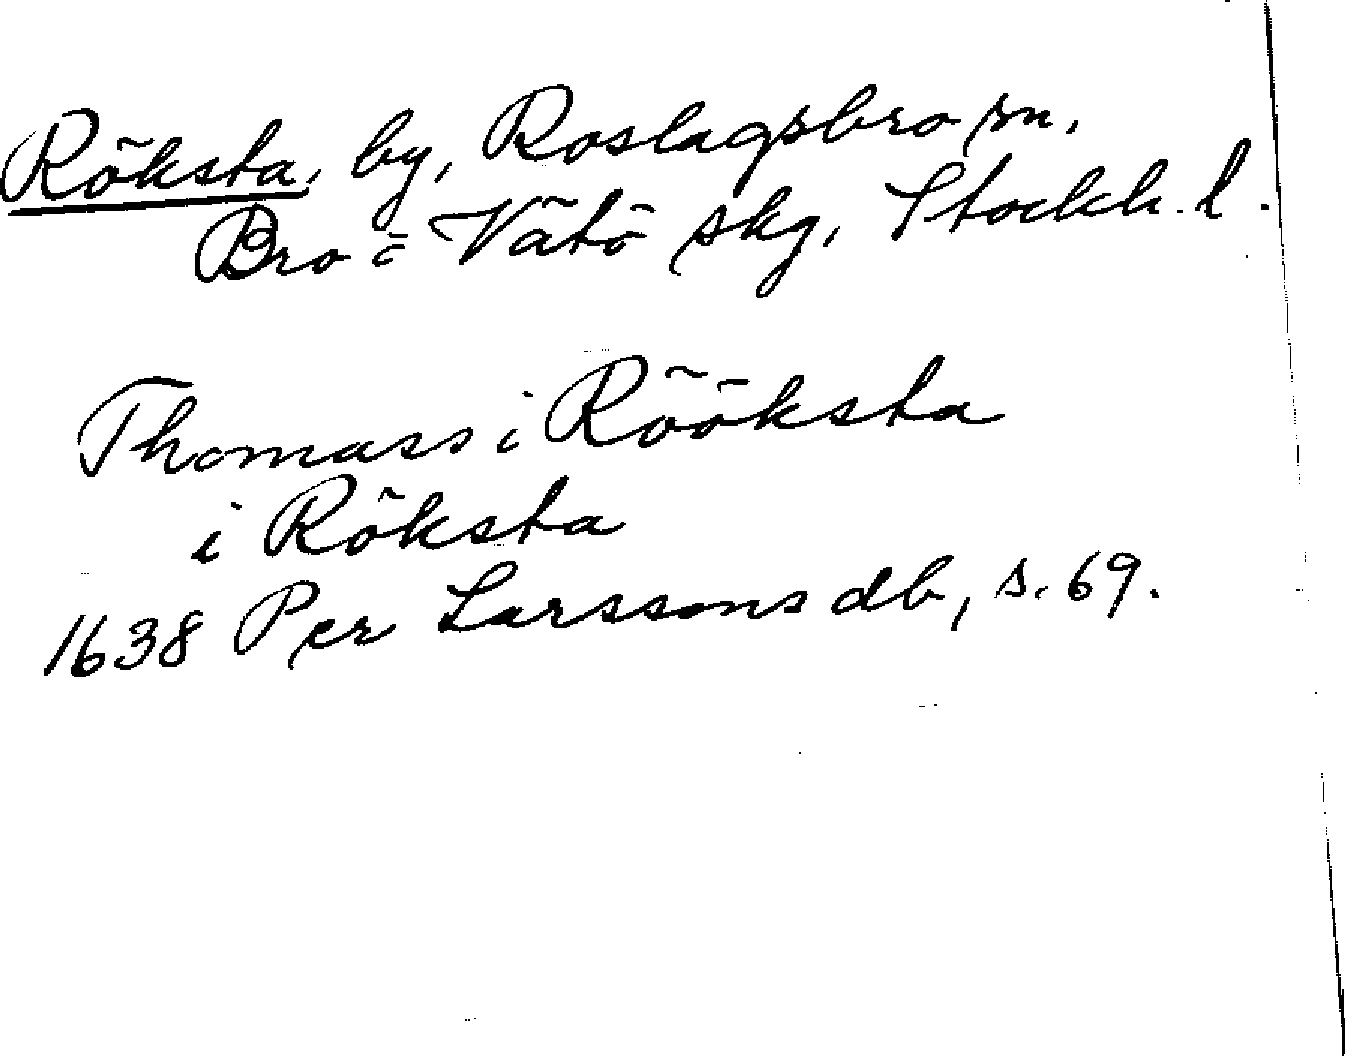 Röksta, by, Roslagsbro sn,
Bro o Vätö skg, Stockh. l.
Thomass i Rööksta
i Röksta
1638 Per Larssons db, s. 69.